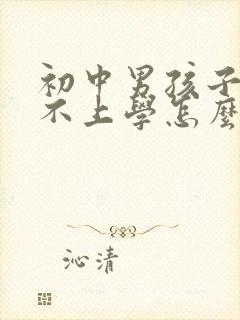 初中男孩子
不上學怎麼
沁清